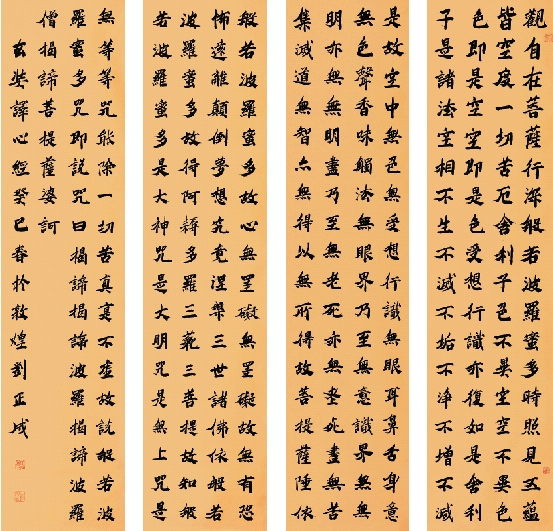 觀自在菩薩行深般若波羅蜜多時照見五蘊
皆空度一切苦厄舍利子色不異空空不異色
色即是空空即是色受想行識亦復如是舍利
子是諸法空相不生不滅不垢不淨不增不減
是故空中無色無受想行識無眼耳鼻舌身意
無色聲香味觸法無眼界乃至無意識界無無
明亦無無明盡乃至無老死亦無老死盡無苦
集滅道無智亦無得以無所得故菩提薩埵依
般若波羅蜜多故心無罣礙無罣礙故無有恐
怖遠離顛倒夢想究竟涅槃三世諸佛依般若
波羅蜜多故得阿耨多羅三藐三菩提故知般
若波羅蜜多是大神咒是大明咒是無上咒是
無等等咒能除一切苦真實不虛故說般若波
羅蜜多咒即說咒曰揭諦揭諦波羅揭諦波羅
僧揭諦菩提薩婆訶
玄奘譯心經癸巳春於敦煌劉正成